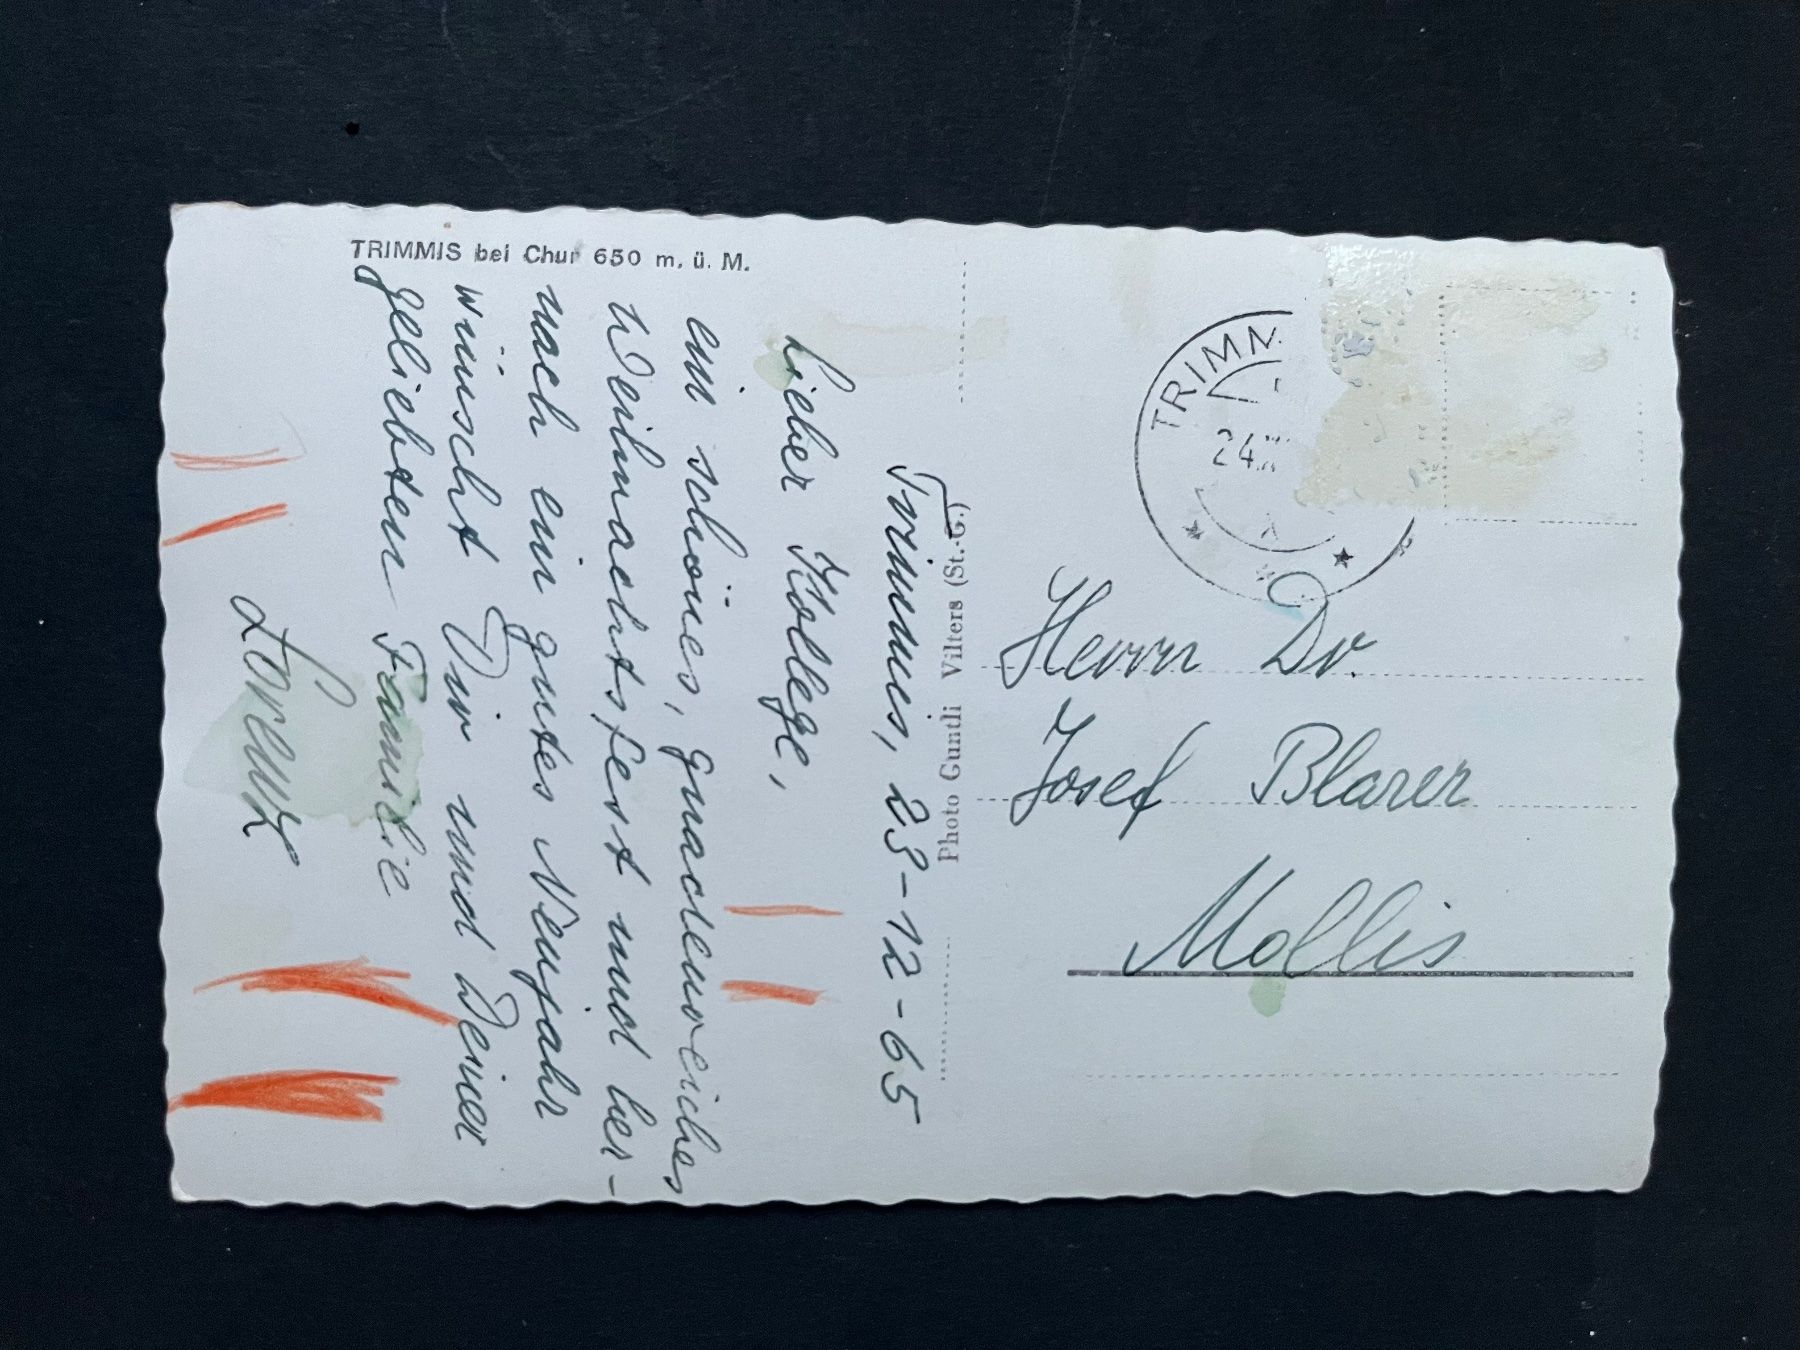 TRIMMIS bei Chur 650 m. ü. M.
Trimmis, 23-12-65
Lieber Kollege,
ein schönes, gnadenreiches
Weihnachtsfest und her-
nach ein gutes Neujahr
wünscht Dir und Deiner
geliebten Familie
Lorenz
Photo Gundi Vilters (St.-G.)
TRIMM
24.
Herrn Dr.
Josef Blarer
Mollis